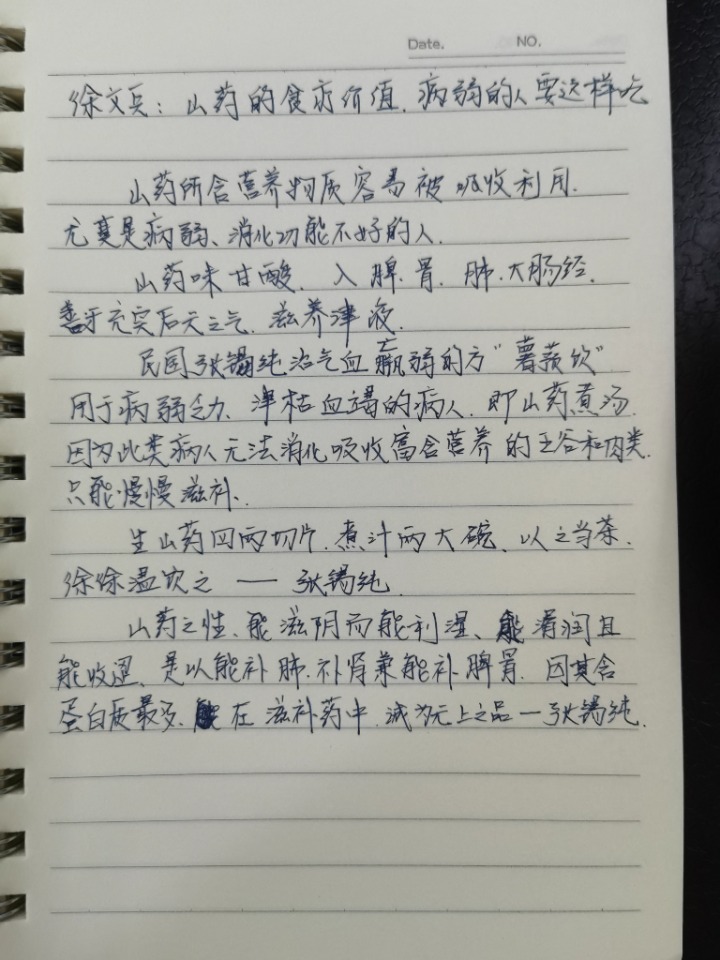 Date. NO.
徐文兵：山药的食疗价值.病弱的人要这样吃
山药所含营养物质容易被吸收利用.
尤其是病弱、消化功能不好的人.
山药味甘酸.入脾.胃.肺.大肠经.
善于充实后天之气.滋养津液.
民国张锡纯治气血羸弱的方“薯蓣饮”
用于病弱乏力.津枯血竭的病人.即山药煮汤.
因为此类病人无法消化吸收富含营养的五谷和肉类.
只能慢慢滋补.
生山药四两切片.煮汁两大碗、以之当茶.
徐徐温饮之 — 张锡纯.
山药之性、能滋阴而能利湿、能滑润且
能收涩.是以能补肺.补肾兼能补脾胃.因其含
蛋白质最多.在滋补药中.诚为无上之品 — 张锡纯.